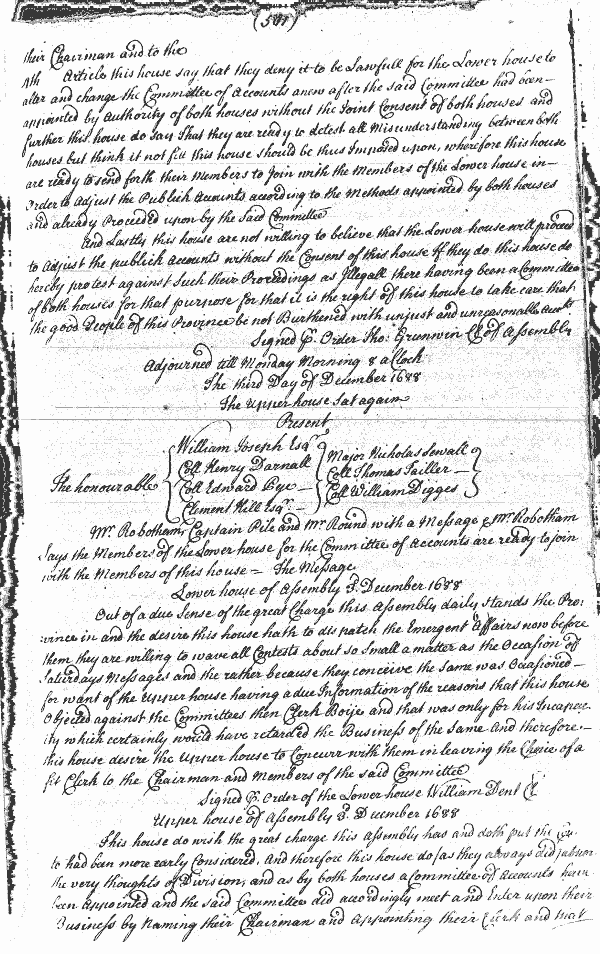 (517)
their Chairman and to the
4th Article this house say that they deny it to be Lawfull for the Lower house to
alter and change the Committee of Accounts anew after the said Committee had been
appointed by Authority of both houses without the Joint Consent of both houses and
further this house do say That they are ready to detest all Misunderstanding between both
houses but think it not fitt this house should be thus Imposed upon, wherefore this house
are ready to send forth their Members to Join with the Members of the Lower house in
order to Adjust the Publick Accounts according to the Methods appointed by both houses
and already Proceeded upon by the said Committee
And Lastly this house are not willing to believe that the Lower house will proceed
to Adjust the publick Accounts without the Consent of this house If they do this house do
hereby protest against Such their Proceedings as Illegall there having been a Committee
of both houses for that purpose for that it is the right of this house to take care that
the good People of this Province be not Burthened with unjust and unreasonable Acctts
Signed p. Order Tho: Grunwin Cl of Assembly
Adjourned till Monday Morning 8 a Clock
The third Day of December 1688
The Upper house Sat again
Present
The honourable
William Joseph Esqr
Coll Henry Darnall
Coll Edward Pye
Clement Hill Esqr
Major Nicholas Sewall
Coll Thomas Tailler
Coll William Digges
Mr. Robotham, Captain Pile and Mr Round with a Message & Mr Robotham
Says the Members of the Lower house for the Committee of Accounts are ready to join
with the Members of this house - The Message
Lower house of Assembly 3d. December 1688
Out of a due Sense of the great Charge this Assembly daily Stands the Pro:
vince in and the desire this house hath to dispatch the Emergent Affairs now before
them they are willing to wave all Contests about so Small a matter as the Occasion of
Saturdays Messages and the rather because they conceive the Same was Ocasioned
for want of the Upper house having a due Information of the reasons that this house
Objected against the Committees then Clerk Boije and that was only for his Incapac
ity which certainly would have retarded the Business of the Same And therefore
this house desire the Upper house to Concurr with them in leaving the Choice of a
fit Clerk to the Chairman and Members of the said Committee
Signed p. Order of the Lower house William Dent Cl
Upper house of Assembly 3d. December 1688
This house do wish the great charge this Assembly has and doth put the
to had been more early Considered, And therefore this house do (as they always did)
the very thoughts of Division, and as by both houses a Committee of Accounts have
been Appointed and the said Committee did accordingly meet and Enter upon their
Business by Naming their Chairman and Appointing their Clerk and that